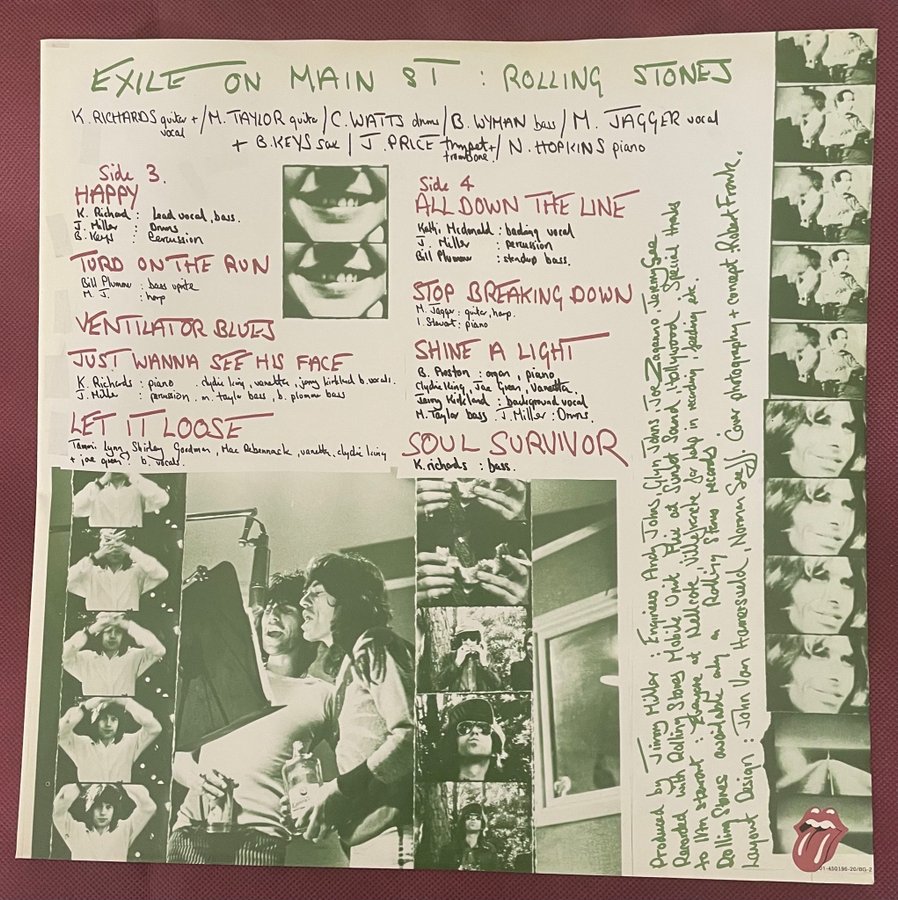 EXILE ON MAIN ST : ROLLING STONES
K. RICHARDS guitar + vocal / M. TAYLOR guitar / C. WATTS drums / B. WYMAN bass / M. JAGGER vocal
+ B. KEYS sax / J. PRICE trumpet + trombone / N. HOPKINS piano
Side 3.
HAPPY
K. Richard : Lead vocal, bass.
J. Miller : Drums
B. Keys : Percussion
TURD ON THE RUN
Bill Plummer : bass uprite
M. J. : harp
VENTILATOR BLUES
JUST WANNA SEE HIS FACE
K. Richards : piano clydie king, vanetta, jerry kirkland b. vocals.
J. Miller : percussion, m. taylor bass, b. plummer bass
LET IT LOOSE
Tammi Lynn, Shirley Goodman, Mac Rebennack, vanetta, clydie king
+ joe green : b. vocals.
Side 4
ALL DOWN THE LINE
Kathi Mcdonald : backing vocal
J. Miller : percussion
Bill Plummer : standup bass.
STOP BREAKING DOWN
M. Jagger : guitar, harp.
I. Stewart : piano
SHINE A LIGHT
B. Preston : organ, piano
Clydie King, Joe Green, Vanetta
Jerry Kirkland : background vocal
M. Taylor bass J. Miller : Drums
SOUL SURVIVOR
K. richards : bass.
Produced by Jimmy Miller : Engineers Andy Johns, Glyn Johns, Joe Zagarino, Jeremy Gee
Recorded with Rolling Stones Mobile Unit Mix at Sunset Sound, Hollywood Special thanks
to Ian stewart : everyone at Nellcote Villefranche for help in recording, feeding etc.
Rolling Stones available only on Rolling Stones records
Layout Design : John Van Hamersveld, Norman Seeff Cover photography + concept Robert Frank.